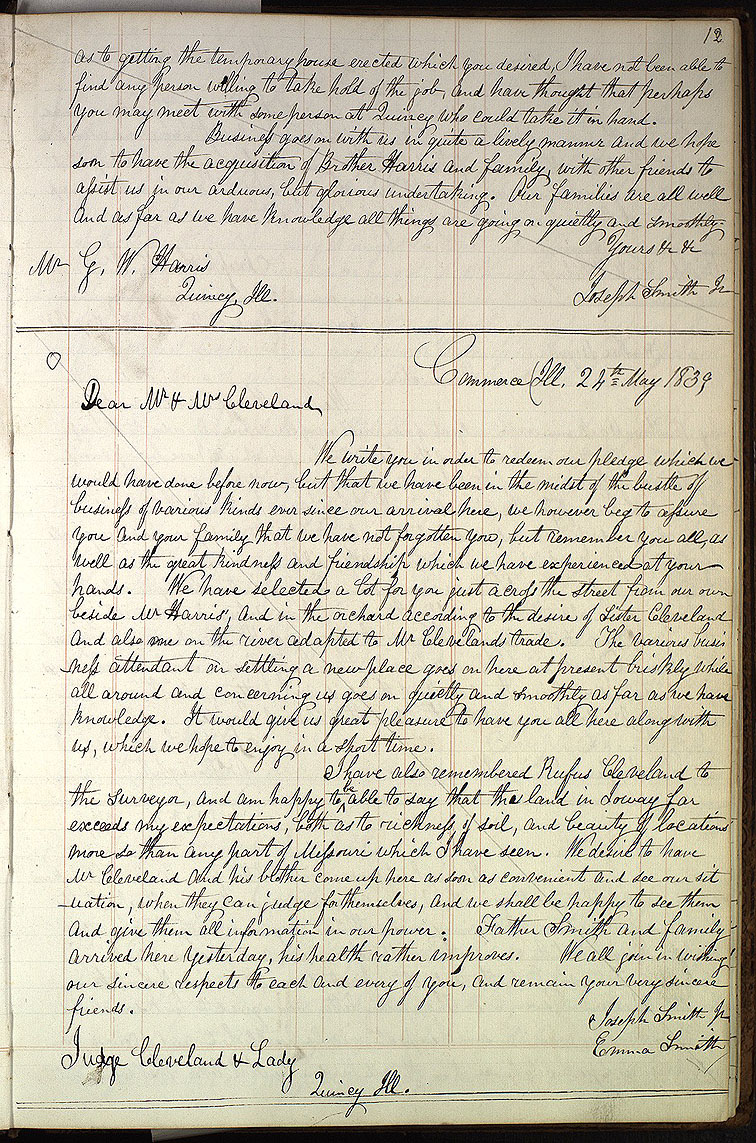 12
as to getting the temporary house erected which you desired, I have not been able to
find any Person willing to take hold of the job, and have thought that perhaps
you may meet with some person at Quincy who could take it in hand.
Business goes on with us in quite a lively manner and we hope
soon to have the acquisition of Brother Harris and family, with other friends to
assist us in our arduous, but glorious undertaking. Our families are all well
And as far as we have knowledge all things are going on quietly and smoothly
Yours &c &c
Mr G. W. Harris
Quincy, Ill.
Joseph Smith Jr
Commerce Ill. 24th May 1839
Dear Mr & Mrs Cleveland,
We write you in order to redeem our pledge which we
would have done before now, but that we have been in the midst of the bustle of
business of various kinds ever since our arrival here, we however beg to assure
you and your family that we have not forgotten you, but remember you all, as
well as the great kindness and friendship which we have experienced at your
hands. We have selected a lot for you just across the street from our own
beside Mr Harris, And in the orchard according to the desire of Sister Cleveland
And also one on the river adapted to Mr Clevelands trade. The various busi
ness attendant on settling a new place goes on here at present briskly while
all around and concerning us goes on quietly and smoothly as far as we have
knowledge. It would give us great pleasure to have you all here along with
us, which we hope to enjoy in a short time.
I have also remembered Rufus Cleveland to
the Surveyor, and am happy to be able to say that the land in Ioway far
exceeds my expectations, both as to richness of soil, and beauty of locations
more so than any part of Missouri which I have seen. We desire to have
Mr Cleveland And his brother come up here as soon as convenient and see our sit
uation, when they can judge for themselves, and we shall be happy to see them
And give them all information in our power. Father Smith and family
arrived here yesterday, his health rather improves. We all join in wishing
our sincere respects to each and every of you, and remain your very sincere
friends.
Joseph Smith Jr
Emma Smith
Judge Cleveland & Lady
Quincy Ill.